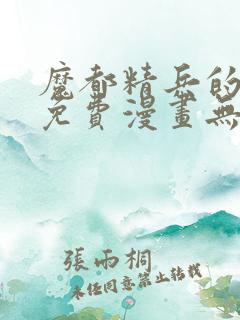 魔都精兵的
免費漫畫無
張雨桐
未经同意禁止转载